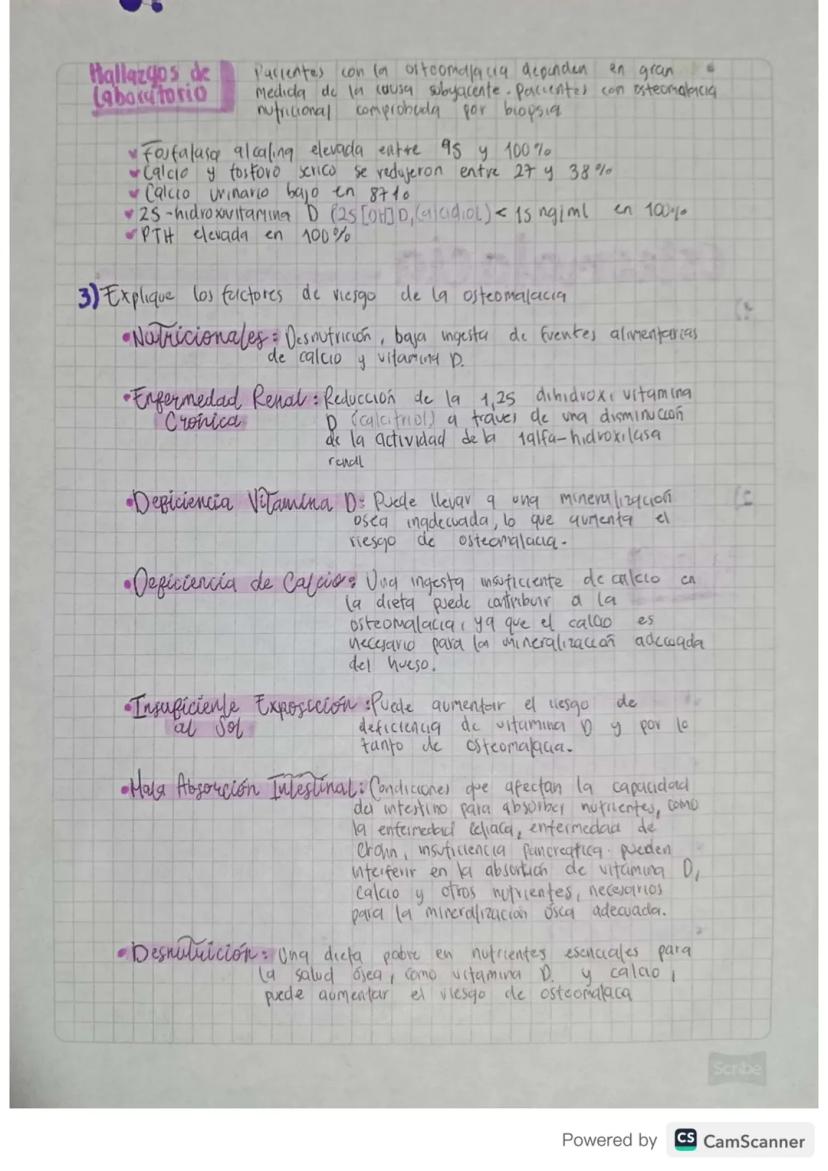 Hallazgos de Laboratorio
Pacientes con la osteomalacia dependen en gran
medida de la causa subyacente. Pacientes con osteomalacia
nutricional comprobada por biopsia
Fosfatasa alcalina elevada entre 95 y 100%
Calcio y fosforo serico se redujeron entre 27 y 38%
Calcio urinario bajo en 87%
25-hidroxivitamina D (25[OH]D, Calcidiol) < 15 ng/ml en 100%
PTH elevada en 100%
3) Explique los factores de riesgo de la osteomalacia
•Nutricionales: Desnutrición, baja ingesta de fuentes alimentarias
de calcio y vitamina D.
•Enfermedad Renal: Reducción de la 1,25 dihidroxi vitamina
Cronica D (calcitriol) a través de una disminución
de la actividad de la 1alfa-hidroxilasa
renal
•Deficiencia Vitamina D: Puede llevar a una mineralización
osea inadecuada, lo que aumenta el
riesgo de osteomalacia.
•Deficiencia de Calcio: Una ingesta insuficiente de calcio en
la dieta puede contribuir a la
osteomalacia, ya que el calcio es
necesario para la mineralización adecuada
del hueso.
•Insuficiente Exposición: Puede aumentar el riesgo de
al Sol deficiencia de vitamina D y por lo
tanto de osteomalacia.
•Mala Absorción Intestinal: Condiciones que afectan la capacidad
del intestino para absorber nutrientes, como
la enfermedad celiaca, enfermedad de
Crohn, insuficiencia pancreatica. pueden
interferir en la absorción de vitamina D,
calcio y otros nutrientes, necesarios
para la mineralización ósea adecuada.
•Desnutrición: Una dieta pobre en nutrientes esenciales para
la salud ósea, como vitamina D y calcio,
puede aumentar el riesgo de osteomalaca
Scribe
Powered by CS CamScanner